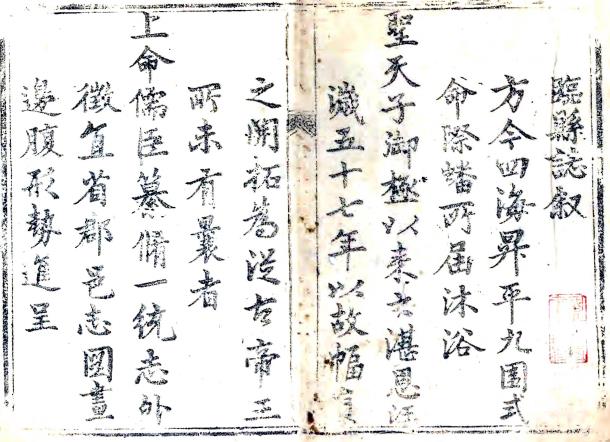 臨縣誌叙
方今四海昇平九圍式
命際蟠所届沐浴
聖天子御極以来玄湛恩汪
濊五十七年以故幅𢄙
之開拓為從古帝王
所未有曩者
上命儒臣纂脩一統志外
徵直省郡邑志圖畫
邊腹形勢進呈